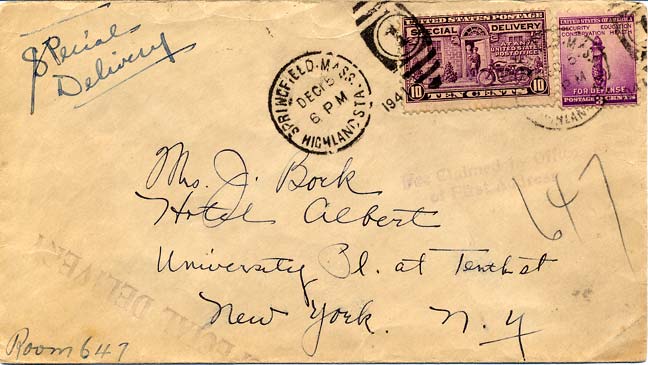 Special
Delivery
SPRINGFIELD, MASS.
DEC 15
6 PM
1941
HIGHLAND STA.
UNITED STATES POSTAGE
SPECIAL DELIVERY
UNITED STATES
POST OFFICE
10 TEN CENTS 10
UNITED STATES OF AMERICA
SECURITY EDUCATION
CONSERVATION HEALTH
FOR DEFENSE
POSTAGE 3 CENTS
Fee Claimed by Office
of First Address
Mrs. J. Bork
Hotel Albert
University Pl. at Tenth st
New York. N. Y
647
SPECIAL DELIVERY
Room 647